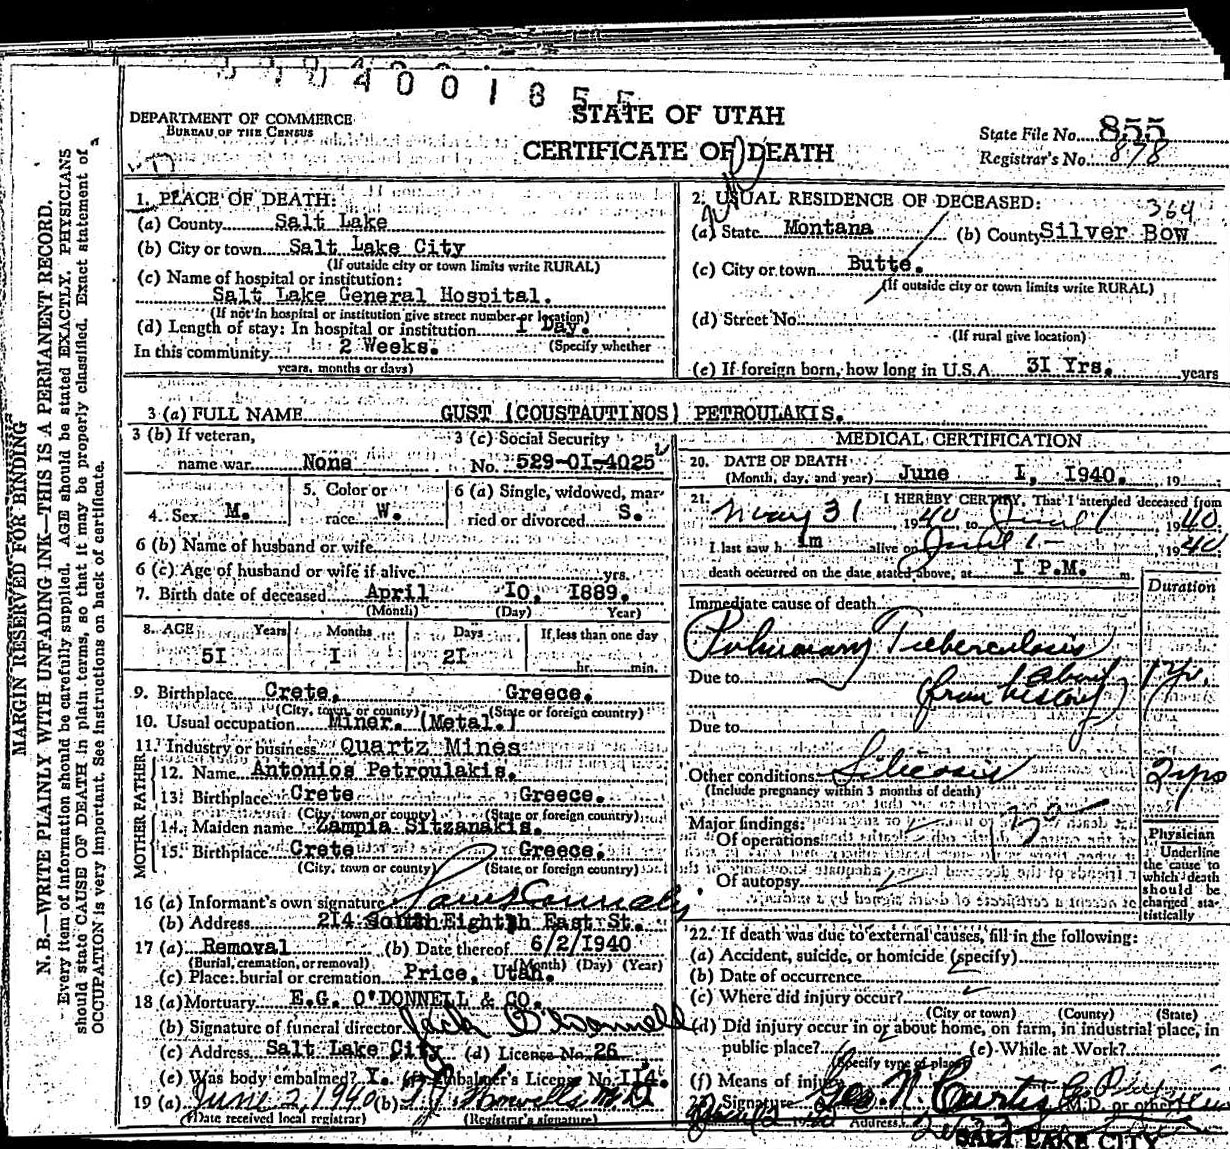 4001855
STATE OF UTAH
DEPARTMENT OF COMMERCE
BUREAU OF THE CENSUS
CERTIFICATE OF DEATH
State File No. 855
Registrar's No. 878
1. PLACE OF DEATH:
(a) County Salt Lake
(b) City or town Salt Lake City
(If outside city or town limits write RURAL)
(c) Name of hospital or institution:
Salt Lake General Hospital.
(If not in hospital or institution give street number or location)
(d) Length of stay: In hospital or institution 1 Day.
(Specify whether
In this community 2 Weeks.
years, months or days)
2. USUAL RESIDENCE OF DECEASED:
364
(a) State Montana (b) County Silver Bow
(c) City or town Butte.
(If outside city or town limits write RURAL)
(d) Street No.
(If rural give location)
(e) If foreign born, how long in U.S.A. 31 Yrs. years
3 (a) FULL NAME GUST (COUSTAUTINOS) PETROULAKIS.
3 (b) If veteran,
name war None
3 (c) Social Security
No. 529-01-4025
4. Sex M.
5. Color or
race W.
6 (a) Single, widowed, mar-
ried or divorced S.
6 (b) Name of husband or wife
6 (c) Age of husband or wife if alive yrs.
7. Birth date of deceased April 10, 1889.
(Month) (Day) Year)
8. AGE Years Months Days If less than one day
51 1 21 hr. min.
9. Birthplace Crete. Greece.
(City, town, or county) (State or foreign country)
10. Usual occupation Miner. (Metal.)
11. Industry or business Quartz Mines
FATHER
12. Name Antonios Petroulakis.
13. Birthplace Crete Greece.
(City, town or county) (State or foreign country)
MOTHER
14. Maiden name Zampia Sitzanakis.
15. Birthplace Crete Greece.
(City, town or county) (State or foreign country)
16 (a) Informant's own signature
(b) Address 214 South Eighth East St.
17 (a) Removal (b) Date thereof 6/2/1940
(Burial, cremation, or removal) (Month) (Day) (Year)
(c) Place: burial or cremation Price, Utah.
18 (a) Mortuary E.G. O'DONNELL & CO.
(b) Signature of funeral director Jack O'Donnell
(c) Address Salt Lake City (d) License No. 26
(e) Was body embalmed? Y. (f) Embalmer's License No. 114.
19 (a) June 2, 1940 (b)
(Date received local registrar) (Registrar's signature)
MEDICAL CERTIFICATION
20. DATE OF DEATH
(Month, day, and year) June 1, 1940. 19
21. I HEREBY CERTIFY, That I attended deceased from
May 31 1940, to June 1 1940
I last saw him alive on June 1 - 1940
death occurred on the date stated above, at 1 P.M. m.
Duration
Immediate cause of death
Pulmonary Tuberculosis
Due to about 1 yr.
(from history)
Due to
Other conditions Silicosis 2 yrs
(Include pregnancy within 3 months of death)
Major findings:
Of operations
Of autopsy
Physician
Underline
the cause to
which death
should be
charged sta-
tistically
22. If death was due to external causes, fill in the following:
(a) Accident, suicide, or homicide (specify)
(b) Date of occurrence
(c) Where did injury occur?
(City or town) (County) (State)
(d) Did injury occur in or about home, on farm, in industrial place, in
public place? (e) While at Work?
(Specify type of place)
(f) Means of injury
23. Signature Geo. N. Curtis
(M.D. or other)
Address
SALT LAKE CITY
MARGIN RESERVED FOR BINDING
N. B.—WRITE PLAINLY WITH UNFADING INK—THIS IS A PERMANENT RECORD.
Every item of information should be carefully supplied. AGE should be stated EXACTLY. PHYSICIANS
should state CAUSE OF DEATH in plain terms, so that it may be properly classified. Exact statement of
OCCUPATION is very important. See instructions on back of certificate.